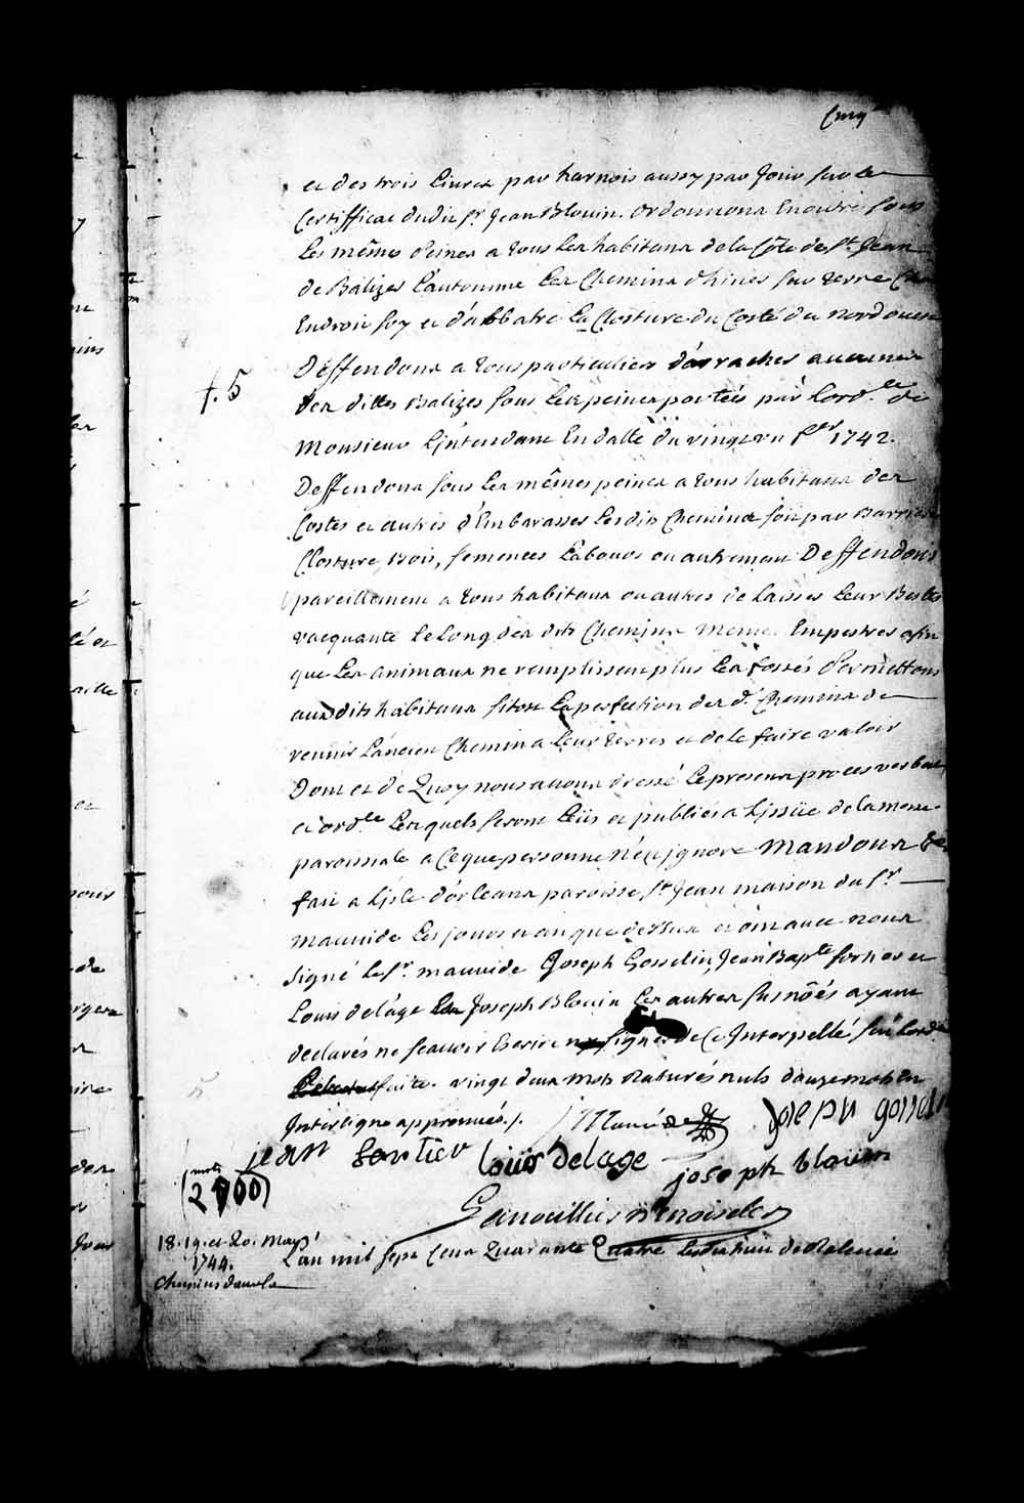 Cinq
et des trois Livres par harnois aussy par Jour sur le
Certifficat dudit Sr. Jean Blouin. Ordonnons En outre sous
Les mêmes Peines a tous Les habitans de la Côte de St. Jean
de Balizer L'automne Les Chemins d'hiver sur terre
Endroit soy et d'abbatre La Closture du Costé du nord ouest
f. 5
Deffendons a tous particuliers d'arracher aucunes
des dittes Balizes sous Les peines portées par Lord.ce de
Monsieur L'jntendant En datte du vingt un 1742.
Deffendons sous Les mêmes peines a tous habitans des
Costes et autres d'Embarasser Lesdits Chemins soit par Barrieres
Closture, Bois, semences Labours ou autrement Deffendons
pareillement a tous habitans ou autres de Laisser Leur Bestes
vacquante Le Long des dits Chemins meme Empestrés afin
que Les animaux ne remplissent plus Les fossés Permettons
auxdits habitans sitost La perfection des d. Chemins de
reunir L'ancien Chemin a Leur terres et de le faire valoir
Dont et de Quoy nous avons dressé Le present proces verbal
et ord.ce Lesquels seront Lüs et publiés a L'jssüe de la messe
paroissiale a Ce que personne n'en jgnore Mandons
fait a L'jsle d'orleans paroisse St. Jean maison du Sr.
mauvide Les jours et an que dessus et ont avec nous
Signé Le Sr. mauvide Joseph Gosselin, Jean Bapte fortier et
Louis delage Joseph Blouin Les autres susnõés ayant
declarés ne sçavoir Escrire ny signer de Ce Interpellé
faite. vingt deux mots Raturés nuls douze mots En
Interligne approuvés ./.
Mauvide Joseph gosselin
jean fortier Louis Delage joseph blouin
(mots
2700)
Lanouillier De Boisclerc
18. 19. et 20. May
1744.
Chemins
L'an mil sept Cent Quarante Quatre Le dix huit de Relevée